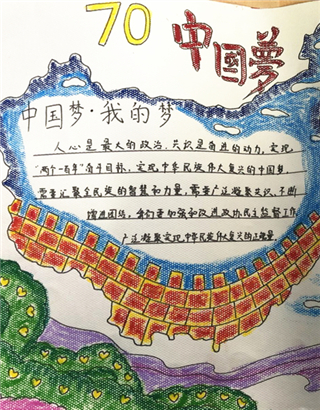 70
中国梦
中国梦·我的梦
人心是最大的政治,共识是奋进的动力,实现
"两个一百年"奋斗目标,实现中华民族伟大复兴的中国梦,
需要汇聚全民族的智慧和力量,需要广泛凝聚共识、不断
增进团结,我们要加强和改进政协民主监督工作
广泛凝聚实现中华民族伟大复兴的正能量